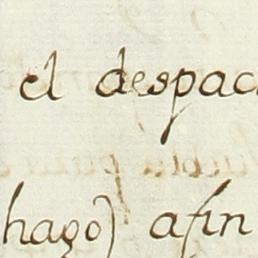 el despac
hago) afin